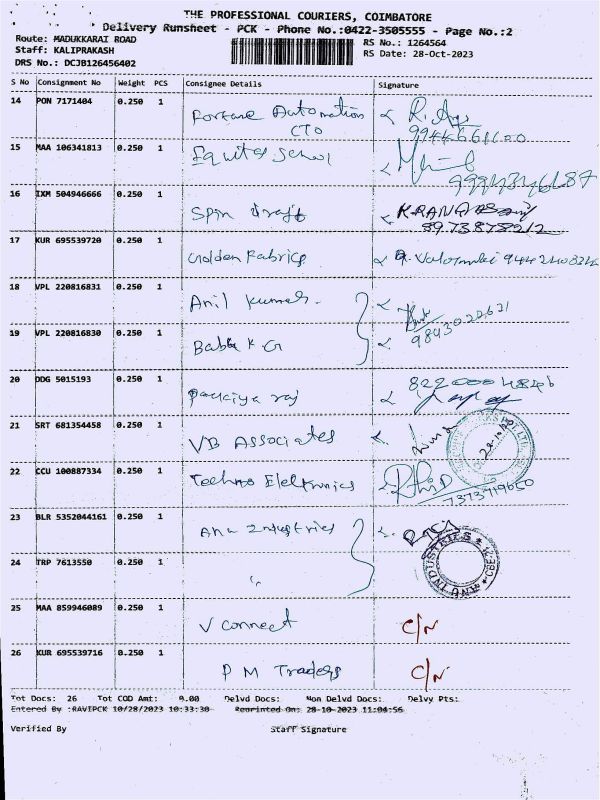 THE PROFESSIONAL COURIERS, COIMBATORE
Delivery Runsheet - PCK - Phone No.:0422-3505555 - Page No.:2
Route: MADUKKARAI ROAD
RS No.: 1264564
Staff: KALIPRAKASH
RS Date: 28-Oct-2023
DRS No.: DCJB126456402
S No Consignment No Weight PCS Consignee Details Signature
14 PON 7171404 0.250 1 Fortune Automation
CTO
15 MAA 106341813 0.250 1 Equitas School
16 IXM 504946666 0.250 1 Spin draft
8973878212
17 KUR 695539720 0.250 1 Golden Fabrics
18 VPL 220816831 0.250 1 Anil Kumar.
9843022621
19 VPL 220816830 0.250 1 Babu K G
20 DDG 5015193 0.250 1 Packiya raj
21 SRT 681354458 0.250 1 VB Associates
22 CCU 100887334 0.250 1 Techno Elektronics
7373919650
23 BLR 5352044161 0.250 1 Anu Industries
24 TRP 7613550 0.250 1 "
ANU INDUSTRIES
25 MAA 859946089 0.250 1 V Connect C/N
26 KUR 695539716 0.250 1 P M Traders C/N
Tot Docs: 26 Tot COD Amt: 0.00 Delvd Docs: Non Delvd Docs: Delvy Pts:
Entered By :RAVIPCK 10/28/2023 10:33:30 Reprinted On: 28-10-2023 11:04:56
Verified By Staff Signature